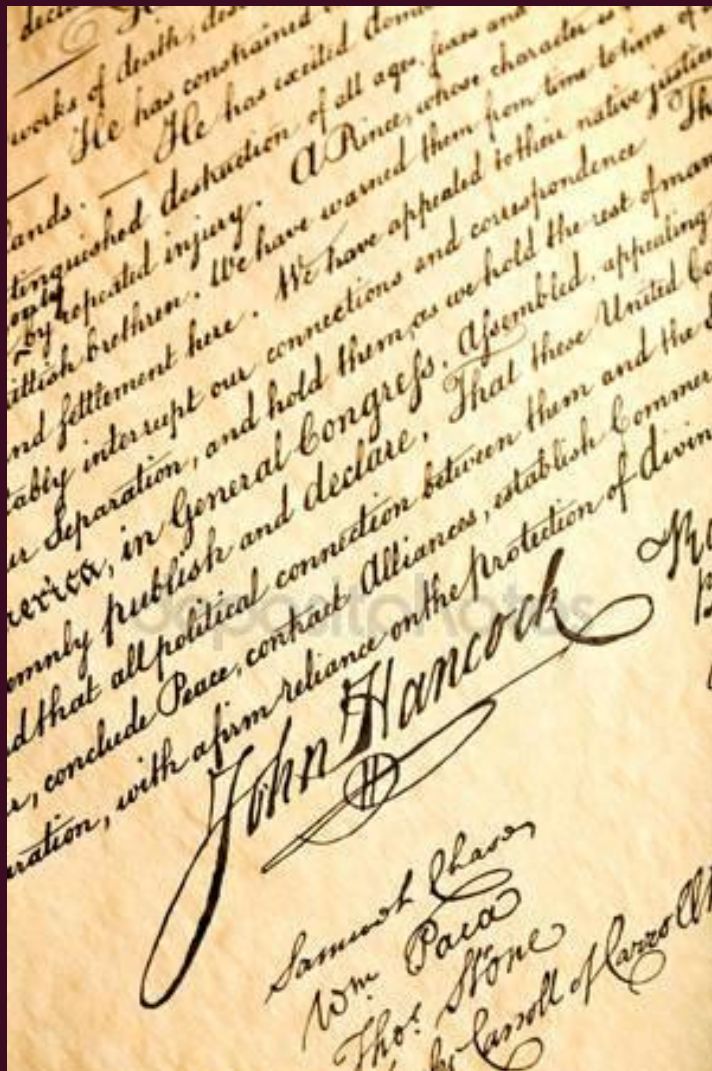 works of death, des
He has constrained
He has excited dome
lands.
tinguished destruction of all ages, sexes and
only
by repeated injury. A Prince, whose character is
brittish brethren. We have warned them from time to time of
and settlement here. We have appealed to their native justice
tably interrupt our connections and correspondence Th
ur Separation, and hold them, as we hold the rest of man
merica, in General Congress, Assembled, appealing
emnly publish and declare, That these United Co
nd that all political connection between them and the S
r, conclude Peace, contract Alliances, establish Commer
aration, with a firm reliance on the protection of divin
depositphotos
John Hancock
Samuel Chase
Wm. Paca
Thos. Stone
Carroll of Carroll